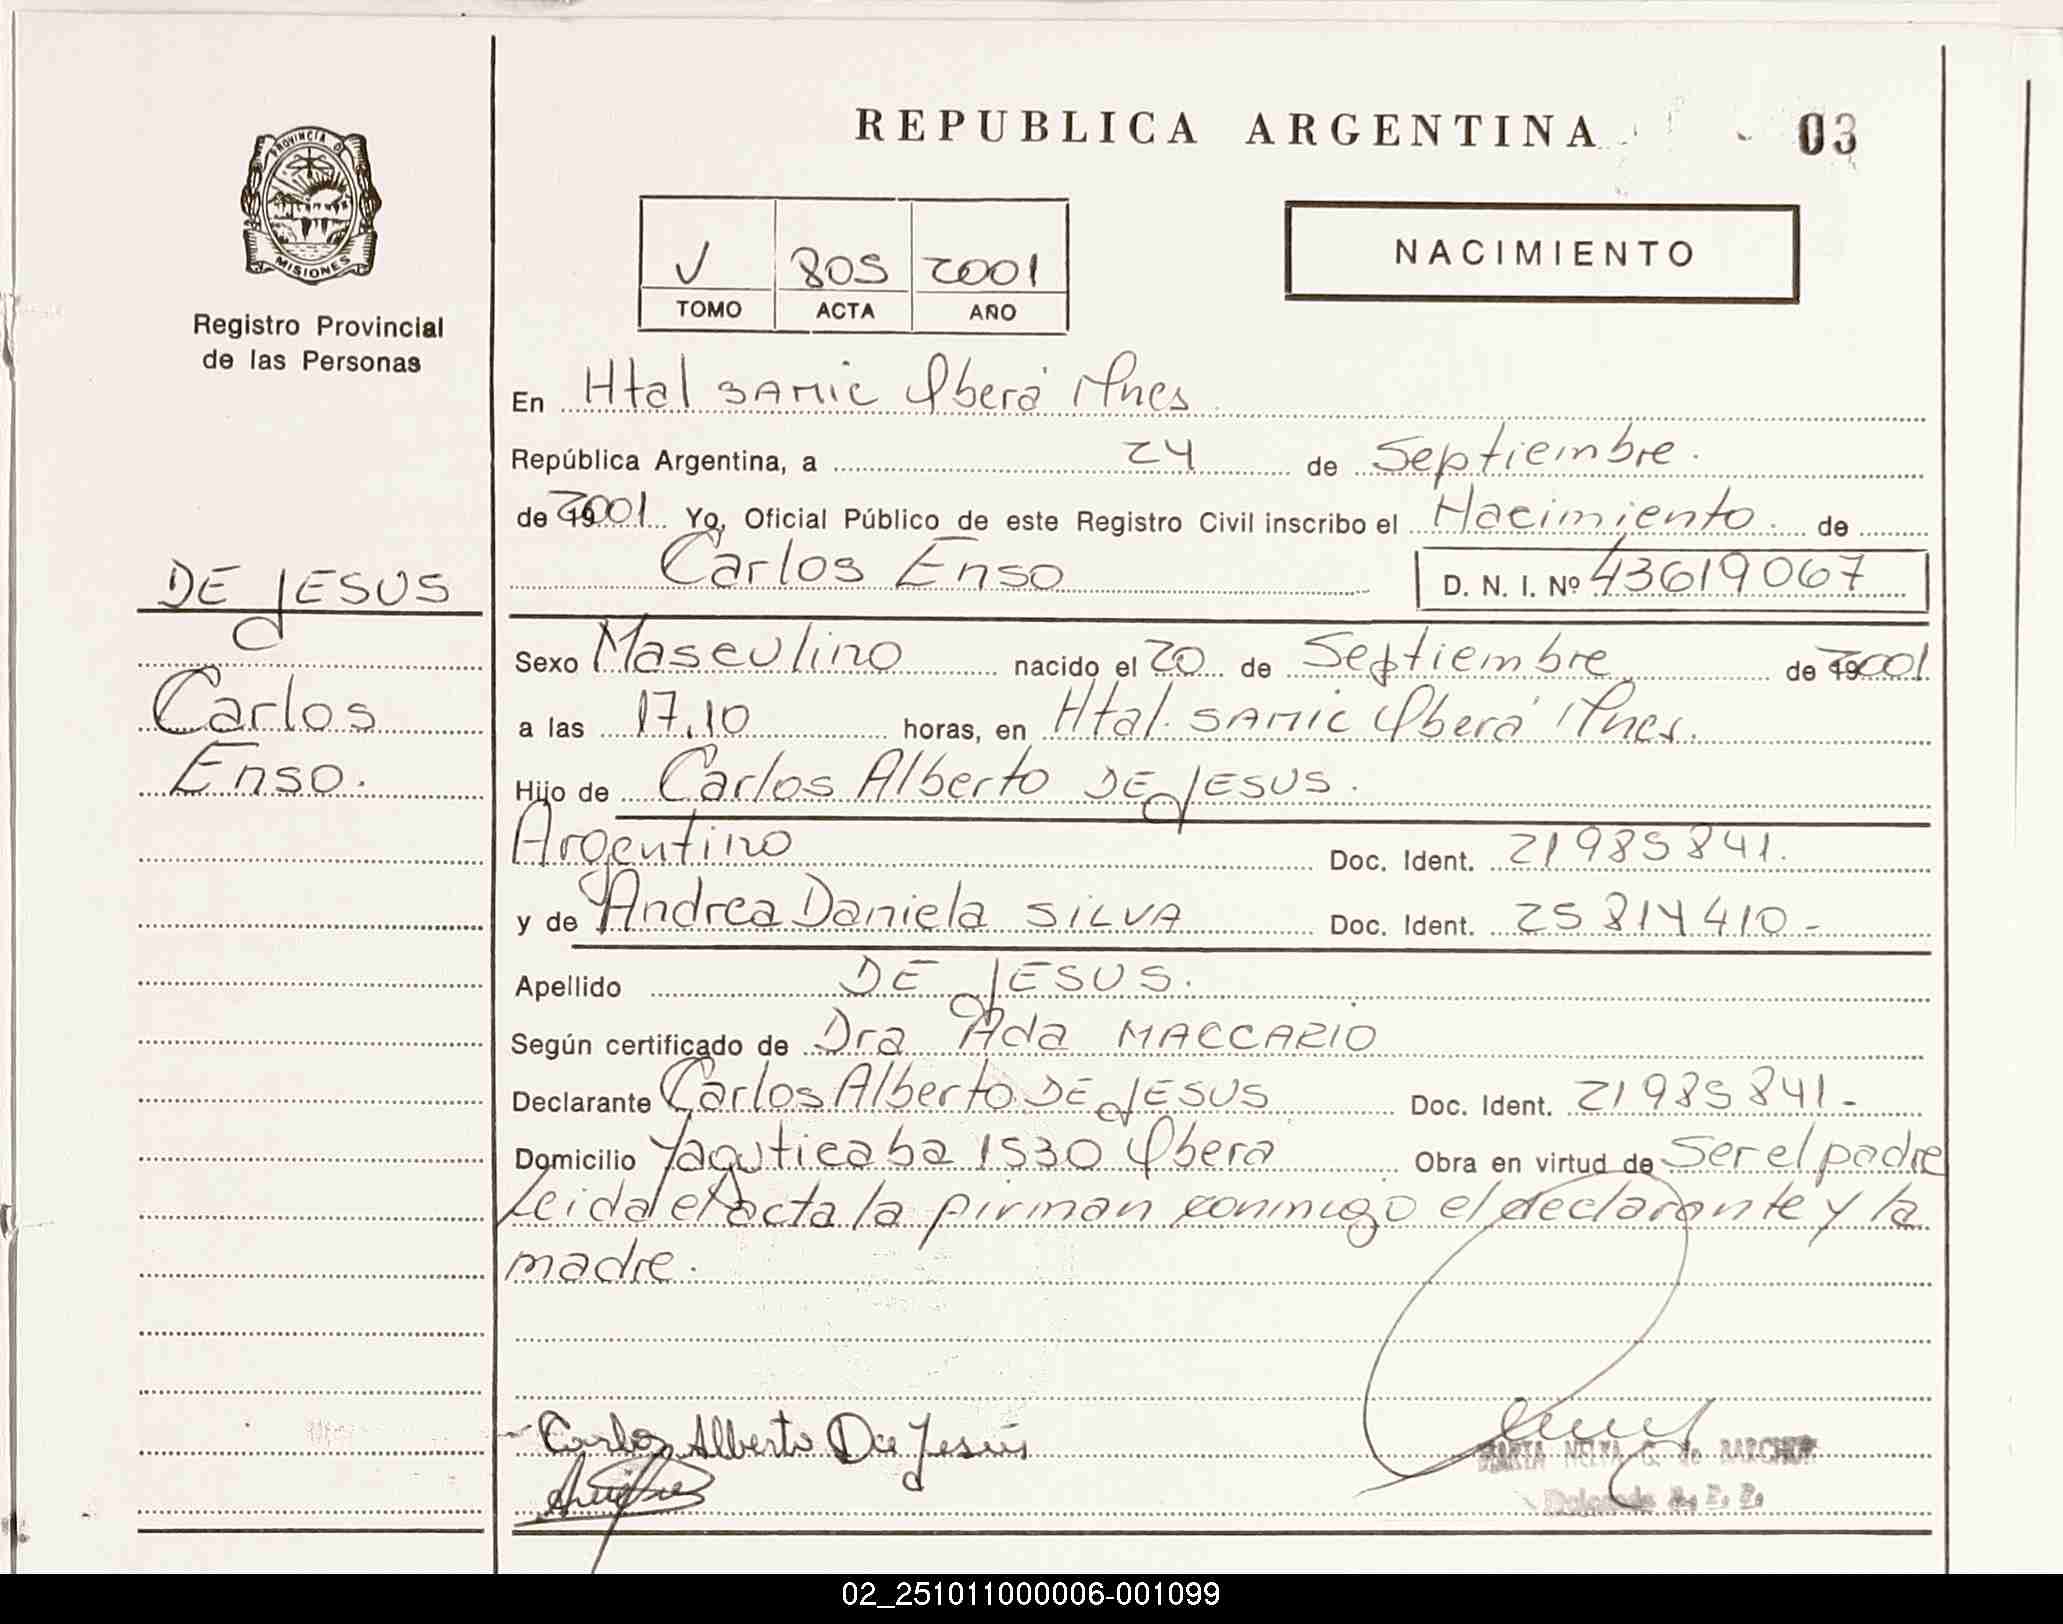 REPUBLICA ARGENTINA
03
PROVINCIA DE
MISIONES
Registro Provincial
de las Personas
V 805 2001
TOMO ACTA AÑO
NACIMIENTO
En Htal SAMIC Oberá Mnes
República Argentina, a 24 de Septiembre.
de 2001 Yo, Oficial Público de este Registro Civil inscribo el Nacimiento. de
Carlos Enso D. N. I. Nº 43619067
DE JESUS
Carlos
Enso.
Sexo Masculino nacido el 20 de Septiembre de 2001
a las 17.10 horas, en Htal. SAMIC Oberá Mnes.
Hijo de Carlos Alberto DE JESUS.
Argentino Doc. Ident. 21985841.
y de Andrea Daniela SILVA Doc. Ident. 25814410-
Apellido DE JESUS.
Según certificado de Dra Ada MACCARIO
Declarante Carlos Alberto DE JESUS Doc. Ident. 21985841-
Domicilio Yaguticaba 1530 Obera Obra en virtud de Ser el padre
Leida el acta la firman conmigo el declarante y la
madre.
Carlos Alberto De Jesús
MARTA NELVA G. de
Delegada R. P. P.
02_251011000006-001099